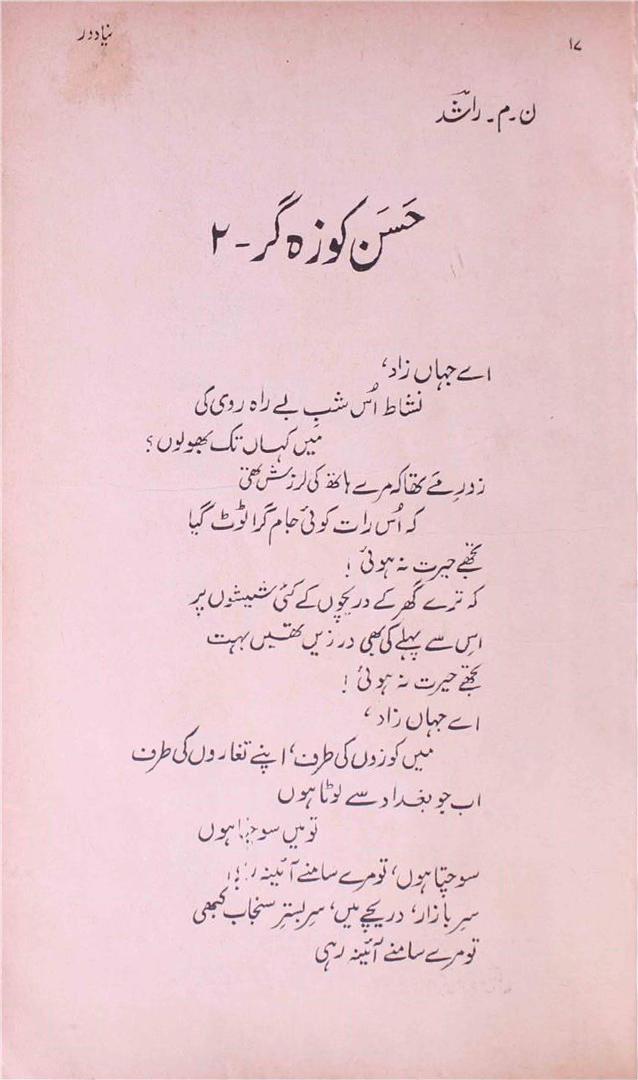 ۱۷
نیا دور
ن ۔ م ۔ راشد
حَسَن کوزہ گر ۔ ۲
اے جہاں زاد،
نشاط اُس شبِ بے راہ روی کی
میں کہاں تک بھولوں؟
زورِ مَے تھا کہ مرے ہاتھ کی لرزش تھی
کہ اُس رات کوئی جام گرا ٹوٹ گیا
تجھے حیرت نہ ہوئی !
کہ ترے گھر کے دریچوں کے کئی شیشوں پر
اس سے پہلے کی بھی درزیں تھیں بہت
تجھے حیرت نہ ہوئی !
اے جہاں زاد ،
میں کوزوں کی طرف، اپنے تغاروں کی طرف
اب جو بغداد سے لوٹا ہوں
تو میں سوچتا ہوں
سوچتا ہوں، تو مرے سامنے آئینہ
سرِ بازار، دریچے میں، سرِ بسترِ سنجاب کبھی
تو مرے سامنے آئینہ رہی